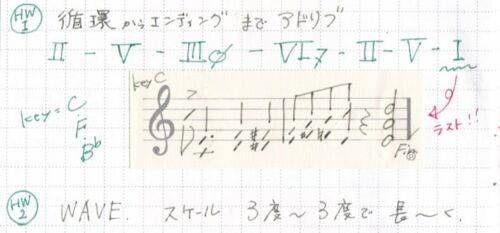 HW 1 循環からエンディングまでアドリブ
II - V - IIIø - VI7 - II - V - I
key C
ラスト!!
key = C
F
B♭
Fine
HW 2 WAVE. スケール 3度〜3度で 長〜く.